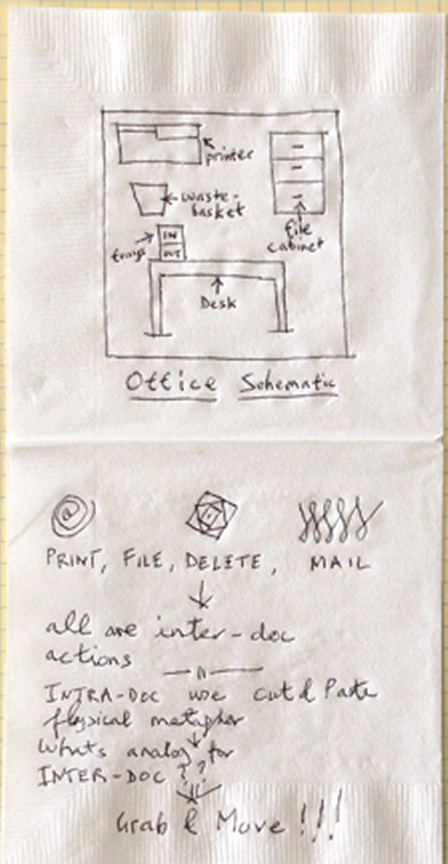 printer
waste-
basket
IN
OUT
trays
file
cabinet
Desk
Office Schematic
PRINT, FILE, DELETE, MAIL
all are inter-doc
actions
INTRA-DOC use cut & Paste
physical metaphor
What's analog for
INTER-DOC ??
Grab & Move !!!